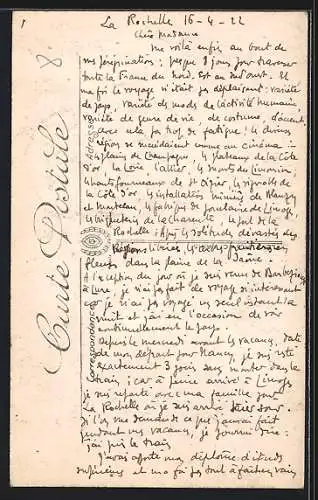 La Rochelle 16-4-22
Chère Madame
me voilà enfin au bout de
mes pérégrinations : presque 8 jours pour traverser
toute la France du Nord-Est au Sud-ouest. Et
ma foi le voyage n'était pas déplaisant : variété
de pays, variété de mode de l'activité humaine
variété de genre de vie, de costume, d'accent,
avec cela pas trop de fatigue ! les diverses
régions se succédaient comme au cinéma :
les plaines de Champagne, les plateaux de la Côte
d'or, la Loire, l'allier, les monts du limousin,
les hauts fourneaux de St Dizier, les vignobles de
la Côte d'or, les installations minières de
et Montceau, les fabriques de porcelaine de Limoges,
les de la charente, le port de la
Rochelle : les solitudes dévastées des
Régions libérées, les
fleurs dans la plaine de la Saône.
A l'exception du jour où je suis venu de
à Lure, je n'ai fait de voyage si intéressant
car je n'ai pas voyagé un seul instant la
nuit et j'ai eu l'occasion de voir
continuellement le pays.
Depuis le mercredi avant les vacances, date
de mon départ pour Nancy, je suis resté
exactement 3 jours sans monter dans le
train ; car à peine arrivé à Limoges
je suis reparti avec ma famille pour
La Rochelle où je suis arrivé hier soir.
Si l'on me demande ce que j'aurai fait
pendant mes vacances, je pourrai dire :
j'ai pris le train
J'avais apporté mon diplôme d'études
supérieures et ma foi
Carte Postale
Correspondance
Adresse